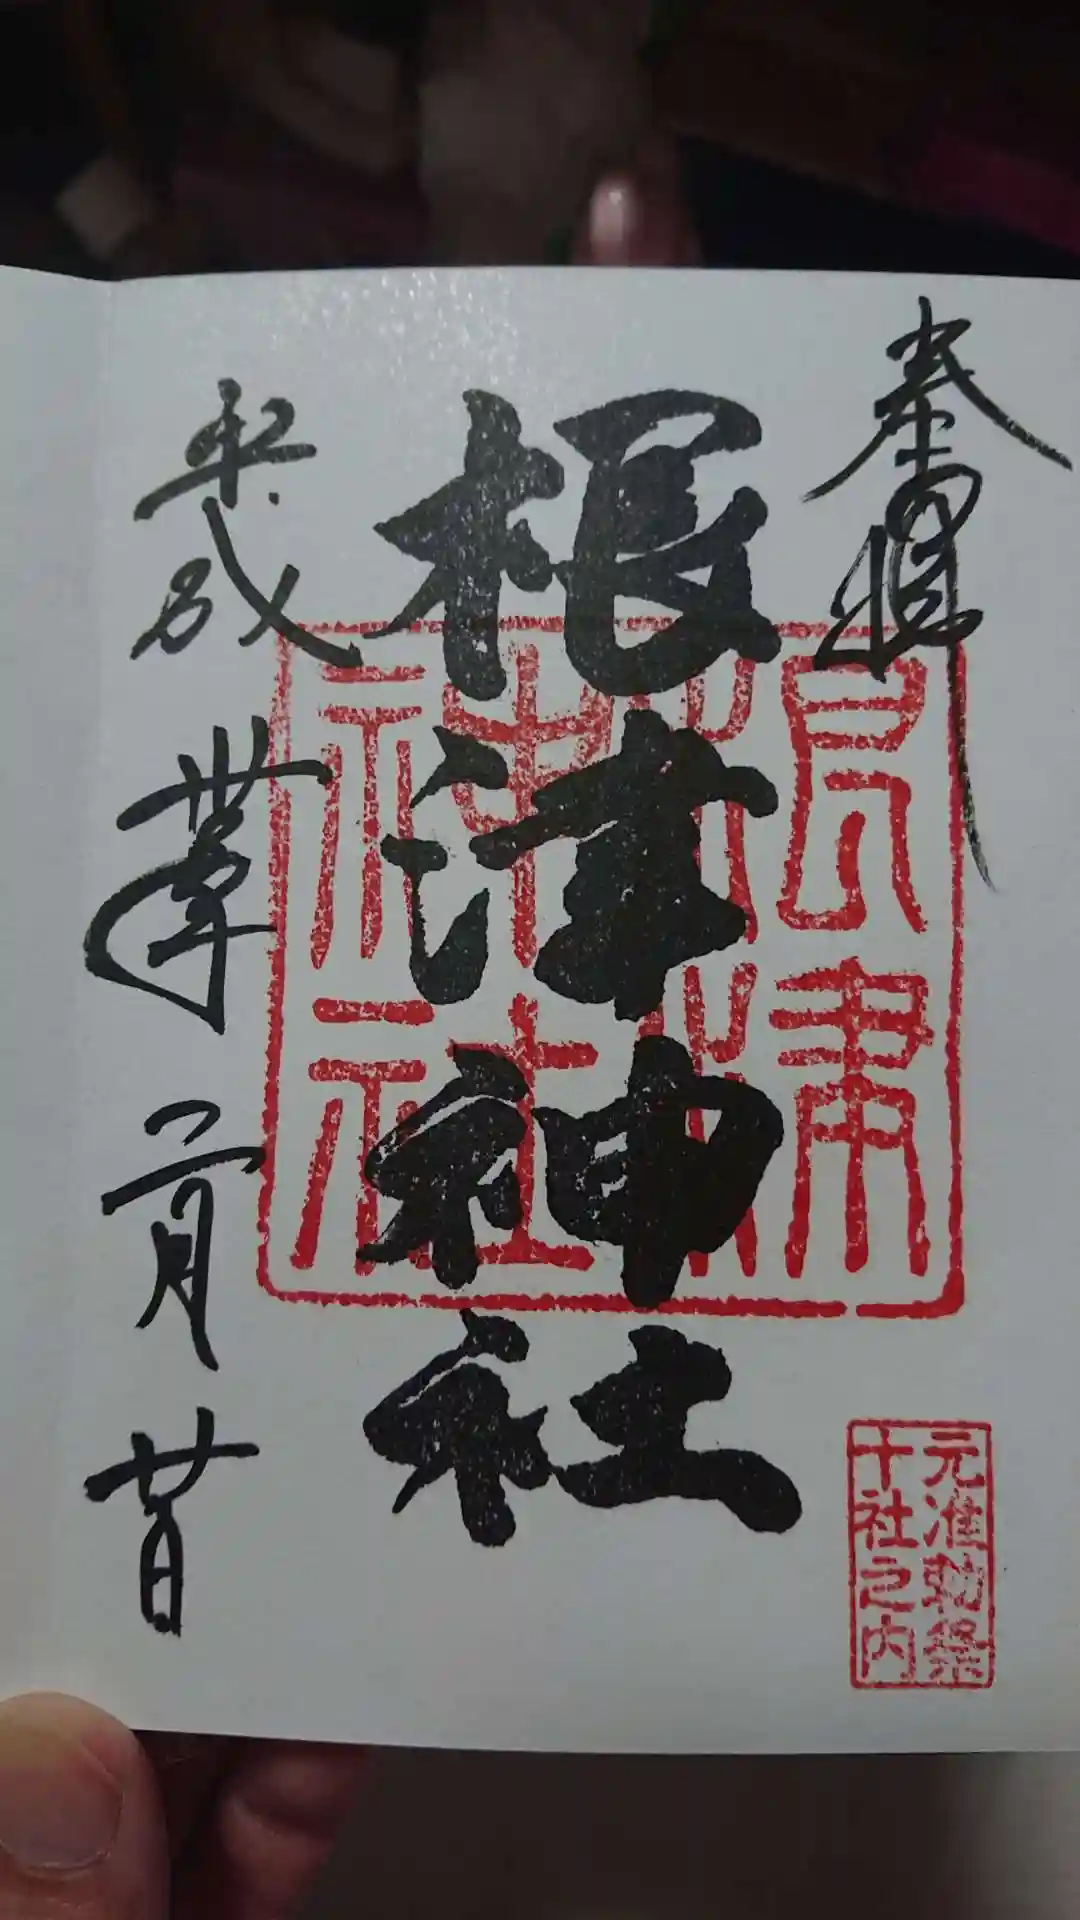 奉
根津神社
平成丗年二月廿日
根津
神社
元准勅祭
十社之内